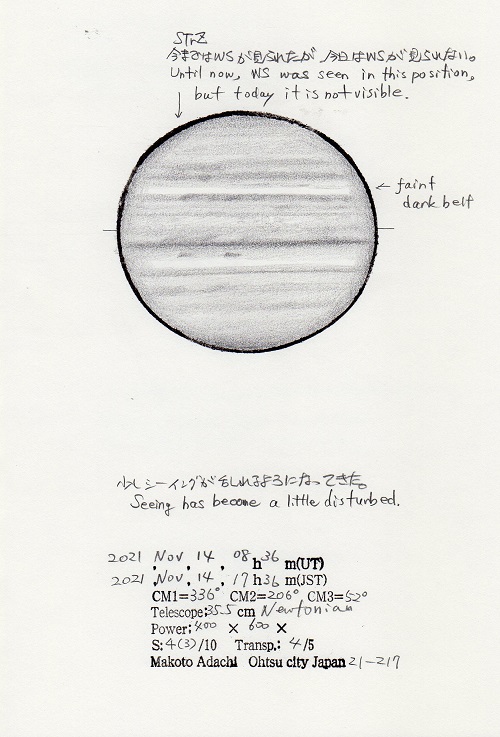 STrZ
今まではWSが見られたが、今日はWSが見られない。
Until now, WS was seen in this position,
but today it is not visible.
← faint
dark belt
少しシーイングがみだれるようになってきた。
Seeing has become a little disturbed.
2021 Nov, 14, 08 h 36 m(UT)
2021 Nov, 14, 17 h 36 m(JST)
CM1=336° CM2=206° CM3=52°
Telescope: 35.5 cm Newtonian
Power: 400 × 600 ×
S: 4(3)/10 Transp.: 4/5
Makoto Adachi Ohtsu city Japan 21-217